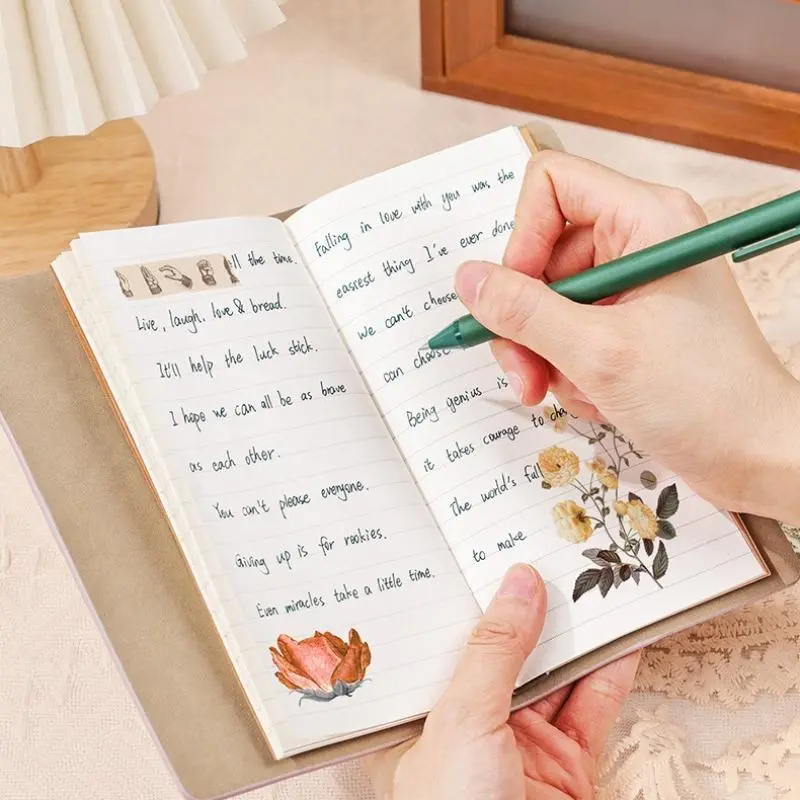 ll the time.
Live, laugh, love & bread.
It'll help the luck stick.
I hope we can all be as brave
as each other.
You can't please everyone.
Giving up is for rookies.
Even miracles take a little time.
Falling in love with you was the
easiest thing I've ever done
we can't choose
can choose
Being genius is
it takes courage to cha
The world's full
to make